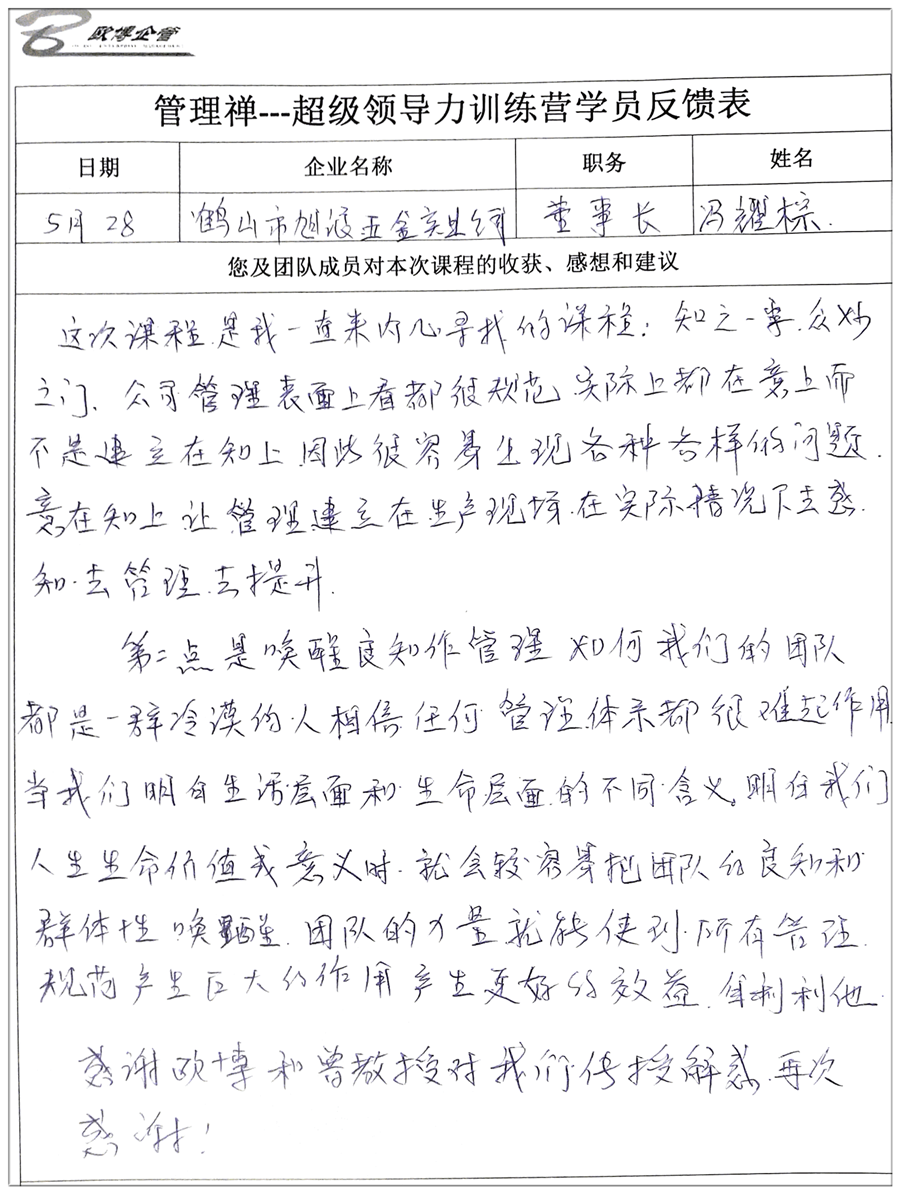 欧博企管
管理禅---超级领导力训练营学员反馈表
日期 企业名称 职务 姓名
5月28 鹤山市旭浪五金实业公司 董事长 冯耀棕.
您及团队成员对本次课程的收获、感想和建议
这次课程是我一直来内心寻找的课程：知之一字.众妙
之门、公司管理表面上看都很规范.实际上都在意上而
不是建立在知上.因此很容易出现各种各样的问题.
意在知上.让管理建立在生产现场.在实际情况下去感
知.去管理.去提升.
第二点是唤醒良知作管理 如何我们的团队
都是一群冷漠的人相信任何管理体系都很难起作用
当我们明白生活层面和生命层面的不同含义。明白我们
人生生命价值或意义时.就会较容易把团队的良知和
群体性唤醒.团队的力量就能使到所有管理.
规范产生巨大的作用产生更好的效益.自利利他.
感谢欧博和曾教授对我们传授解惑.再次
感谢！